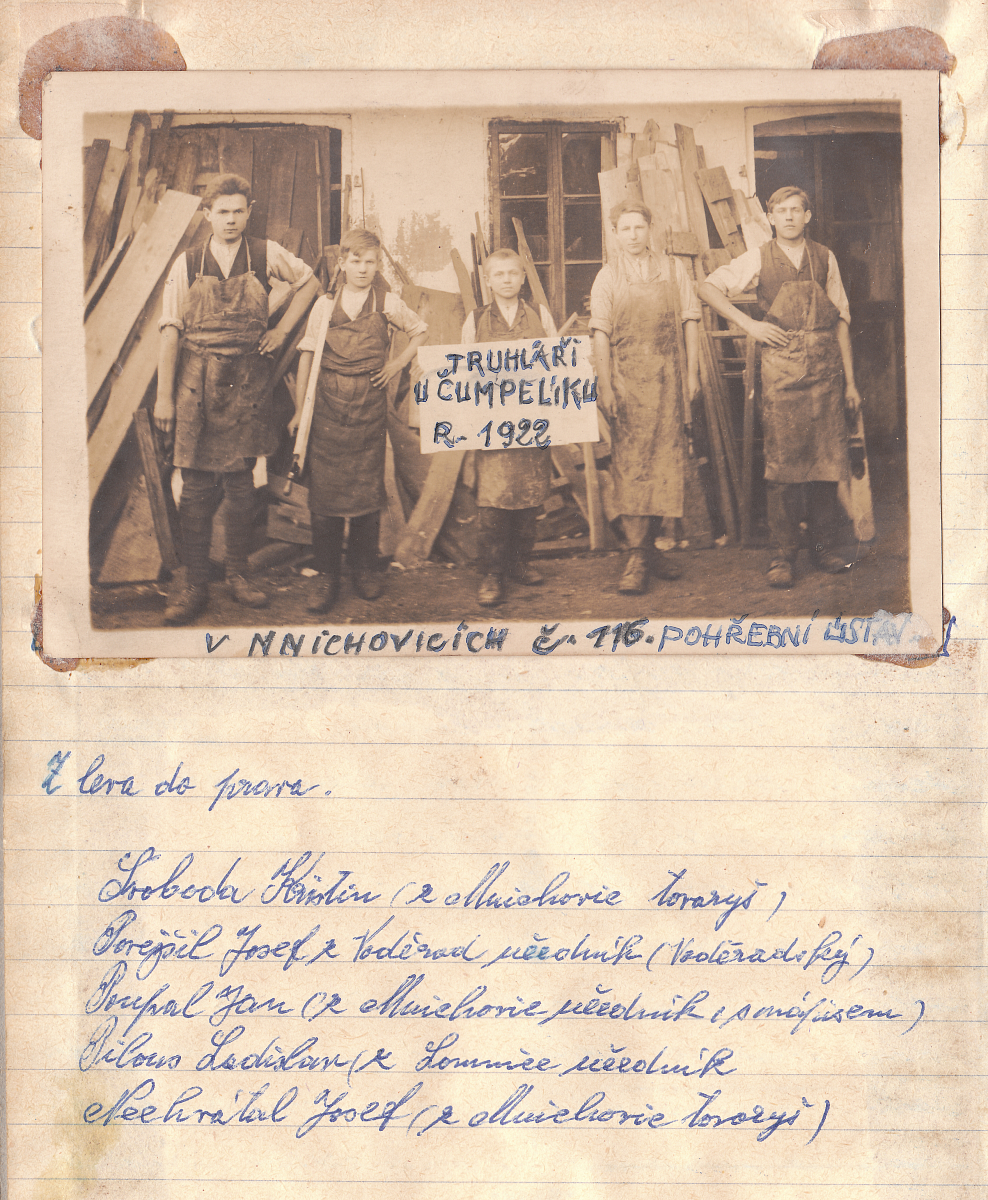 TRUHLÁŘI
U ČUMPELÍKU
R- 1922
V MNICHOVICÍCH č. 116. POHŘEBNÍ ÚSTAV
Z leva do prava.
Svoboda (z Mnichovic tovaryš)
Josef z Voděrad učedník (Voděradský)
Poupal Jan (z Mnichovic učedník,
Pilous Ladislav (z Lomnice učedník
Nechvátal Josef (z Mnichovic tovaryš)